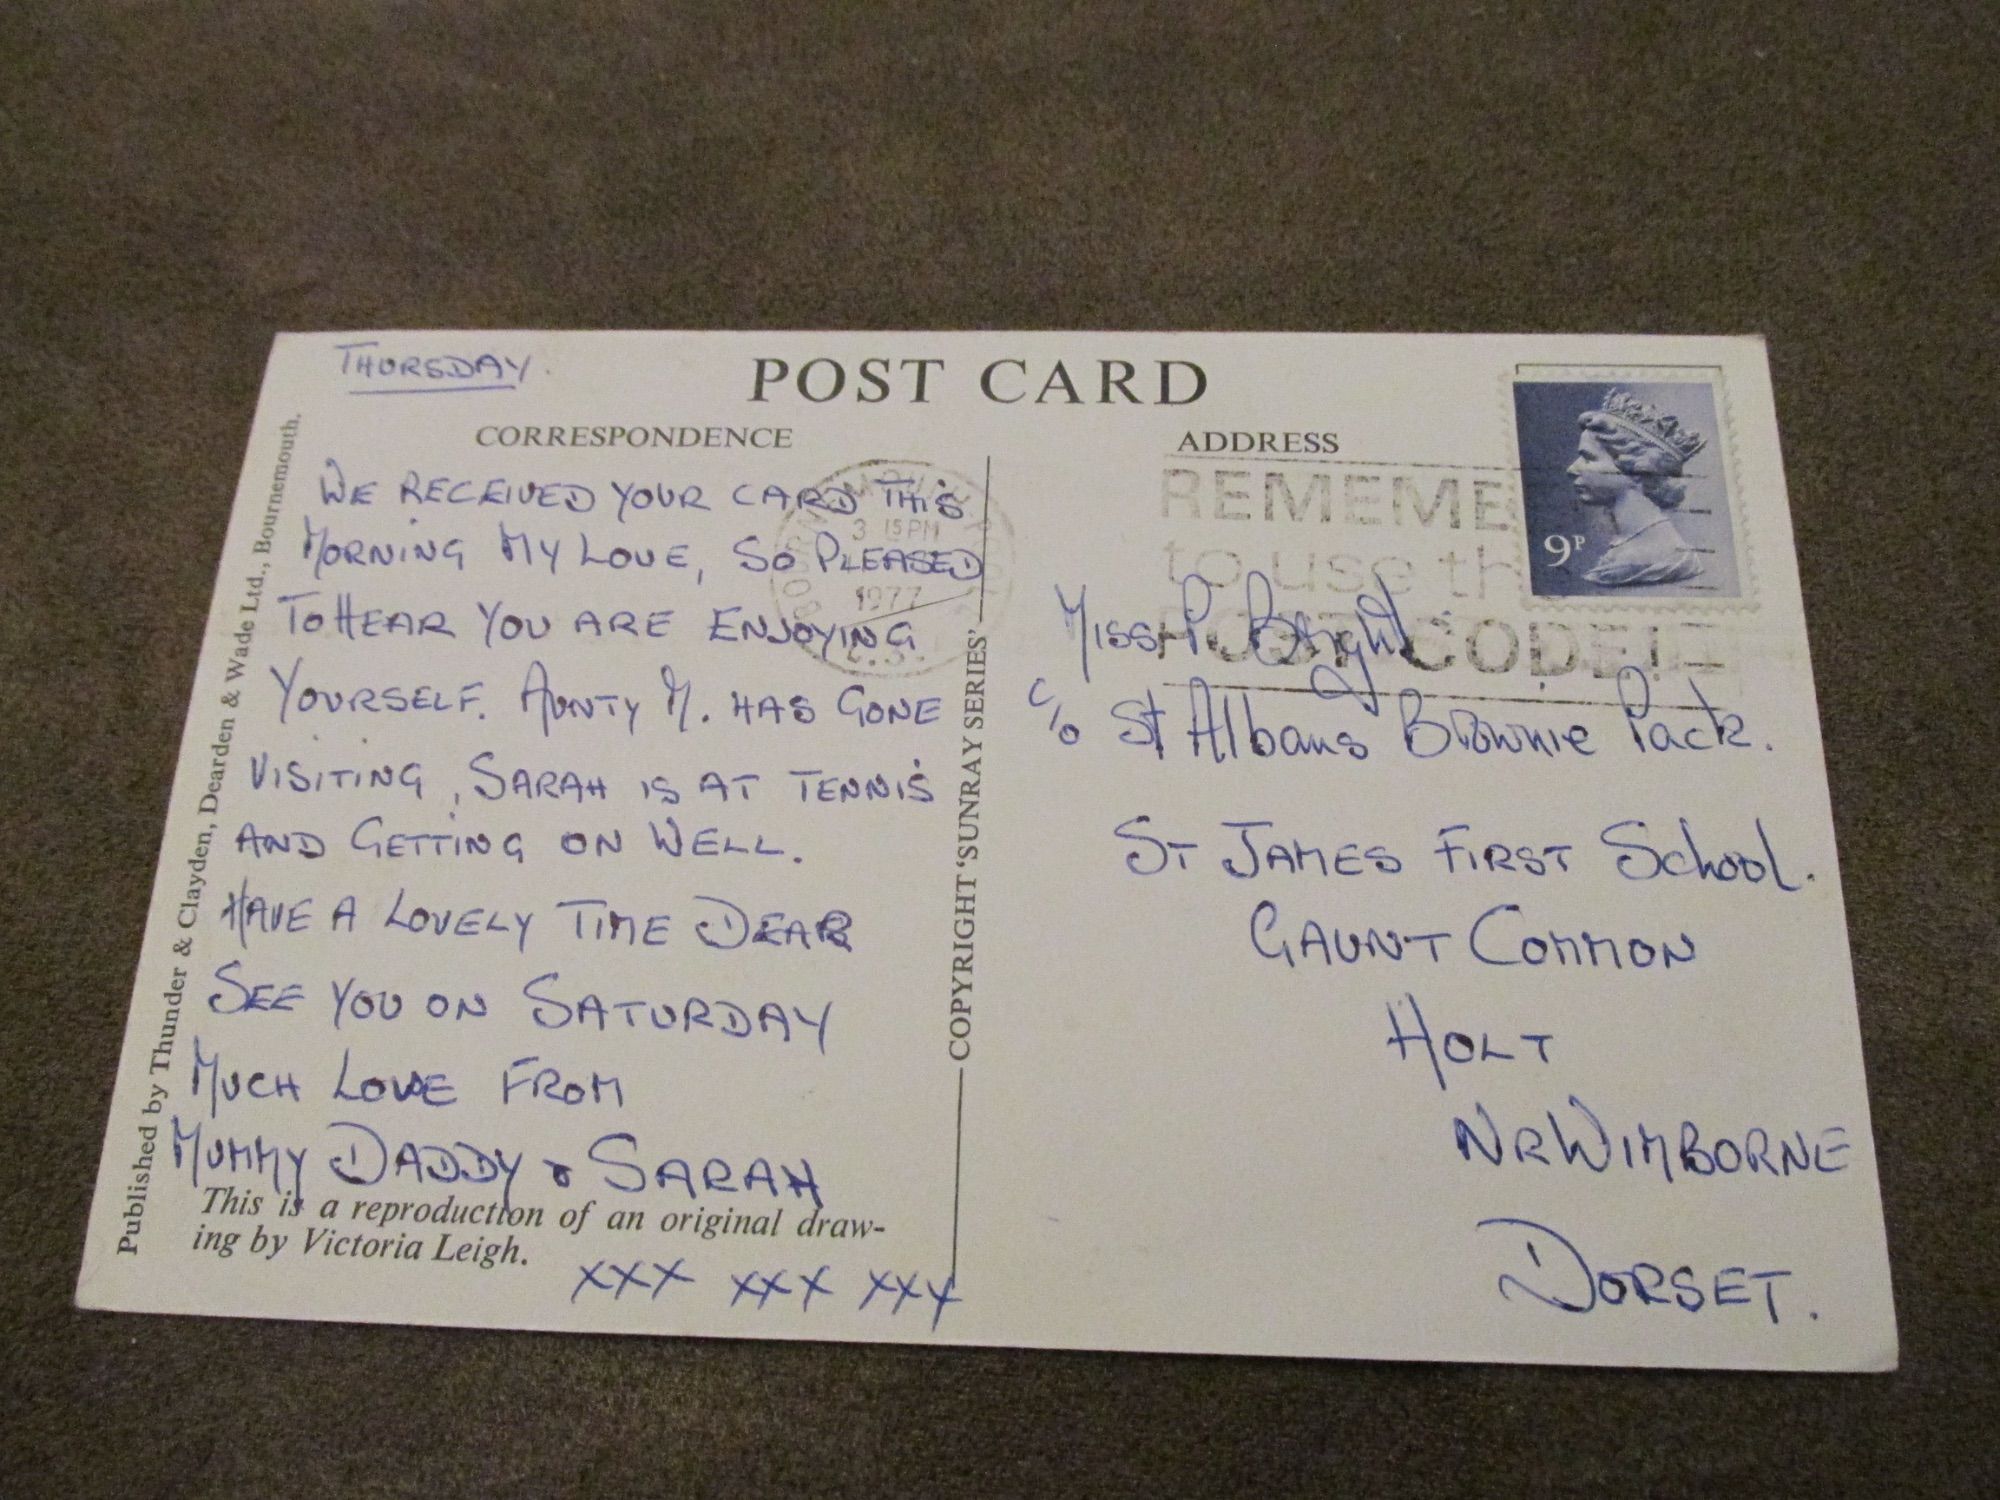 THURSDAY.
POST CARD
CORRESPONDENCE
WE RECEIVED YOUR CARD THIS
MORNING MY LOVE, SO PLEASED
TO HEAR YOU ARE ENJOYING
YOURSELF. AUNTY M. HAS GONE
VISITING, SARAH IS AT TENNIS
AND GETTING ON WELL.
HAVE A LOVELY TIME DEAR
SEE YOU ON SATURDAY
MUCH LOVE FROM
MUMMY DADDY & SARAH
This is a reproduction of an original draw-
ing by Victoria Leigh.
XXX XXX XXX
Published by Thunder & Clayden, Dearden & Wade Ltd., Bournemouth.
COPYRIGHT 'SUNRAY SERIES'
3 15 PM
1977
ADDRESS
REMEME
to use th
POSTCODE
9P
MISS P. Bright
c/o St Albans Brownie Pack.
ST JAMES FIRST School.
GAUNT COMMON
HOLT
NR WIMBORNE
DORSET.